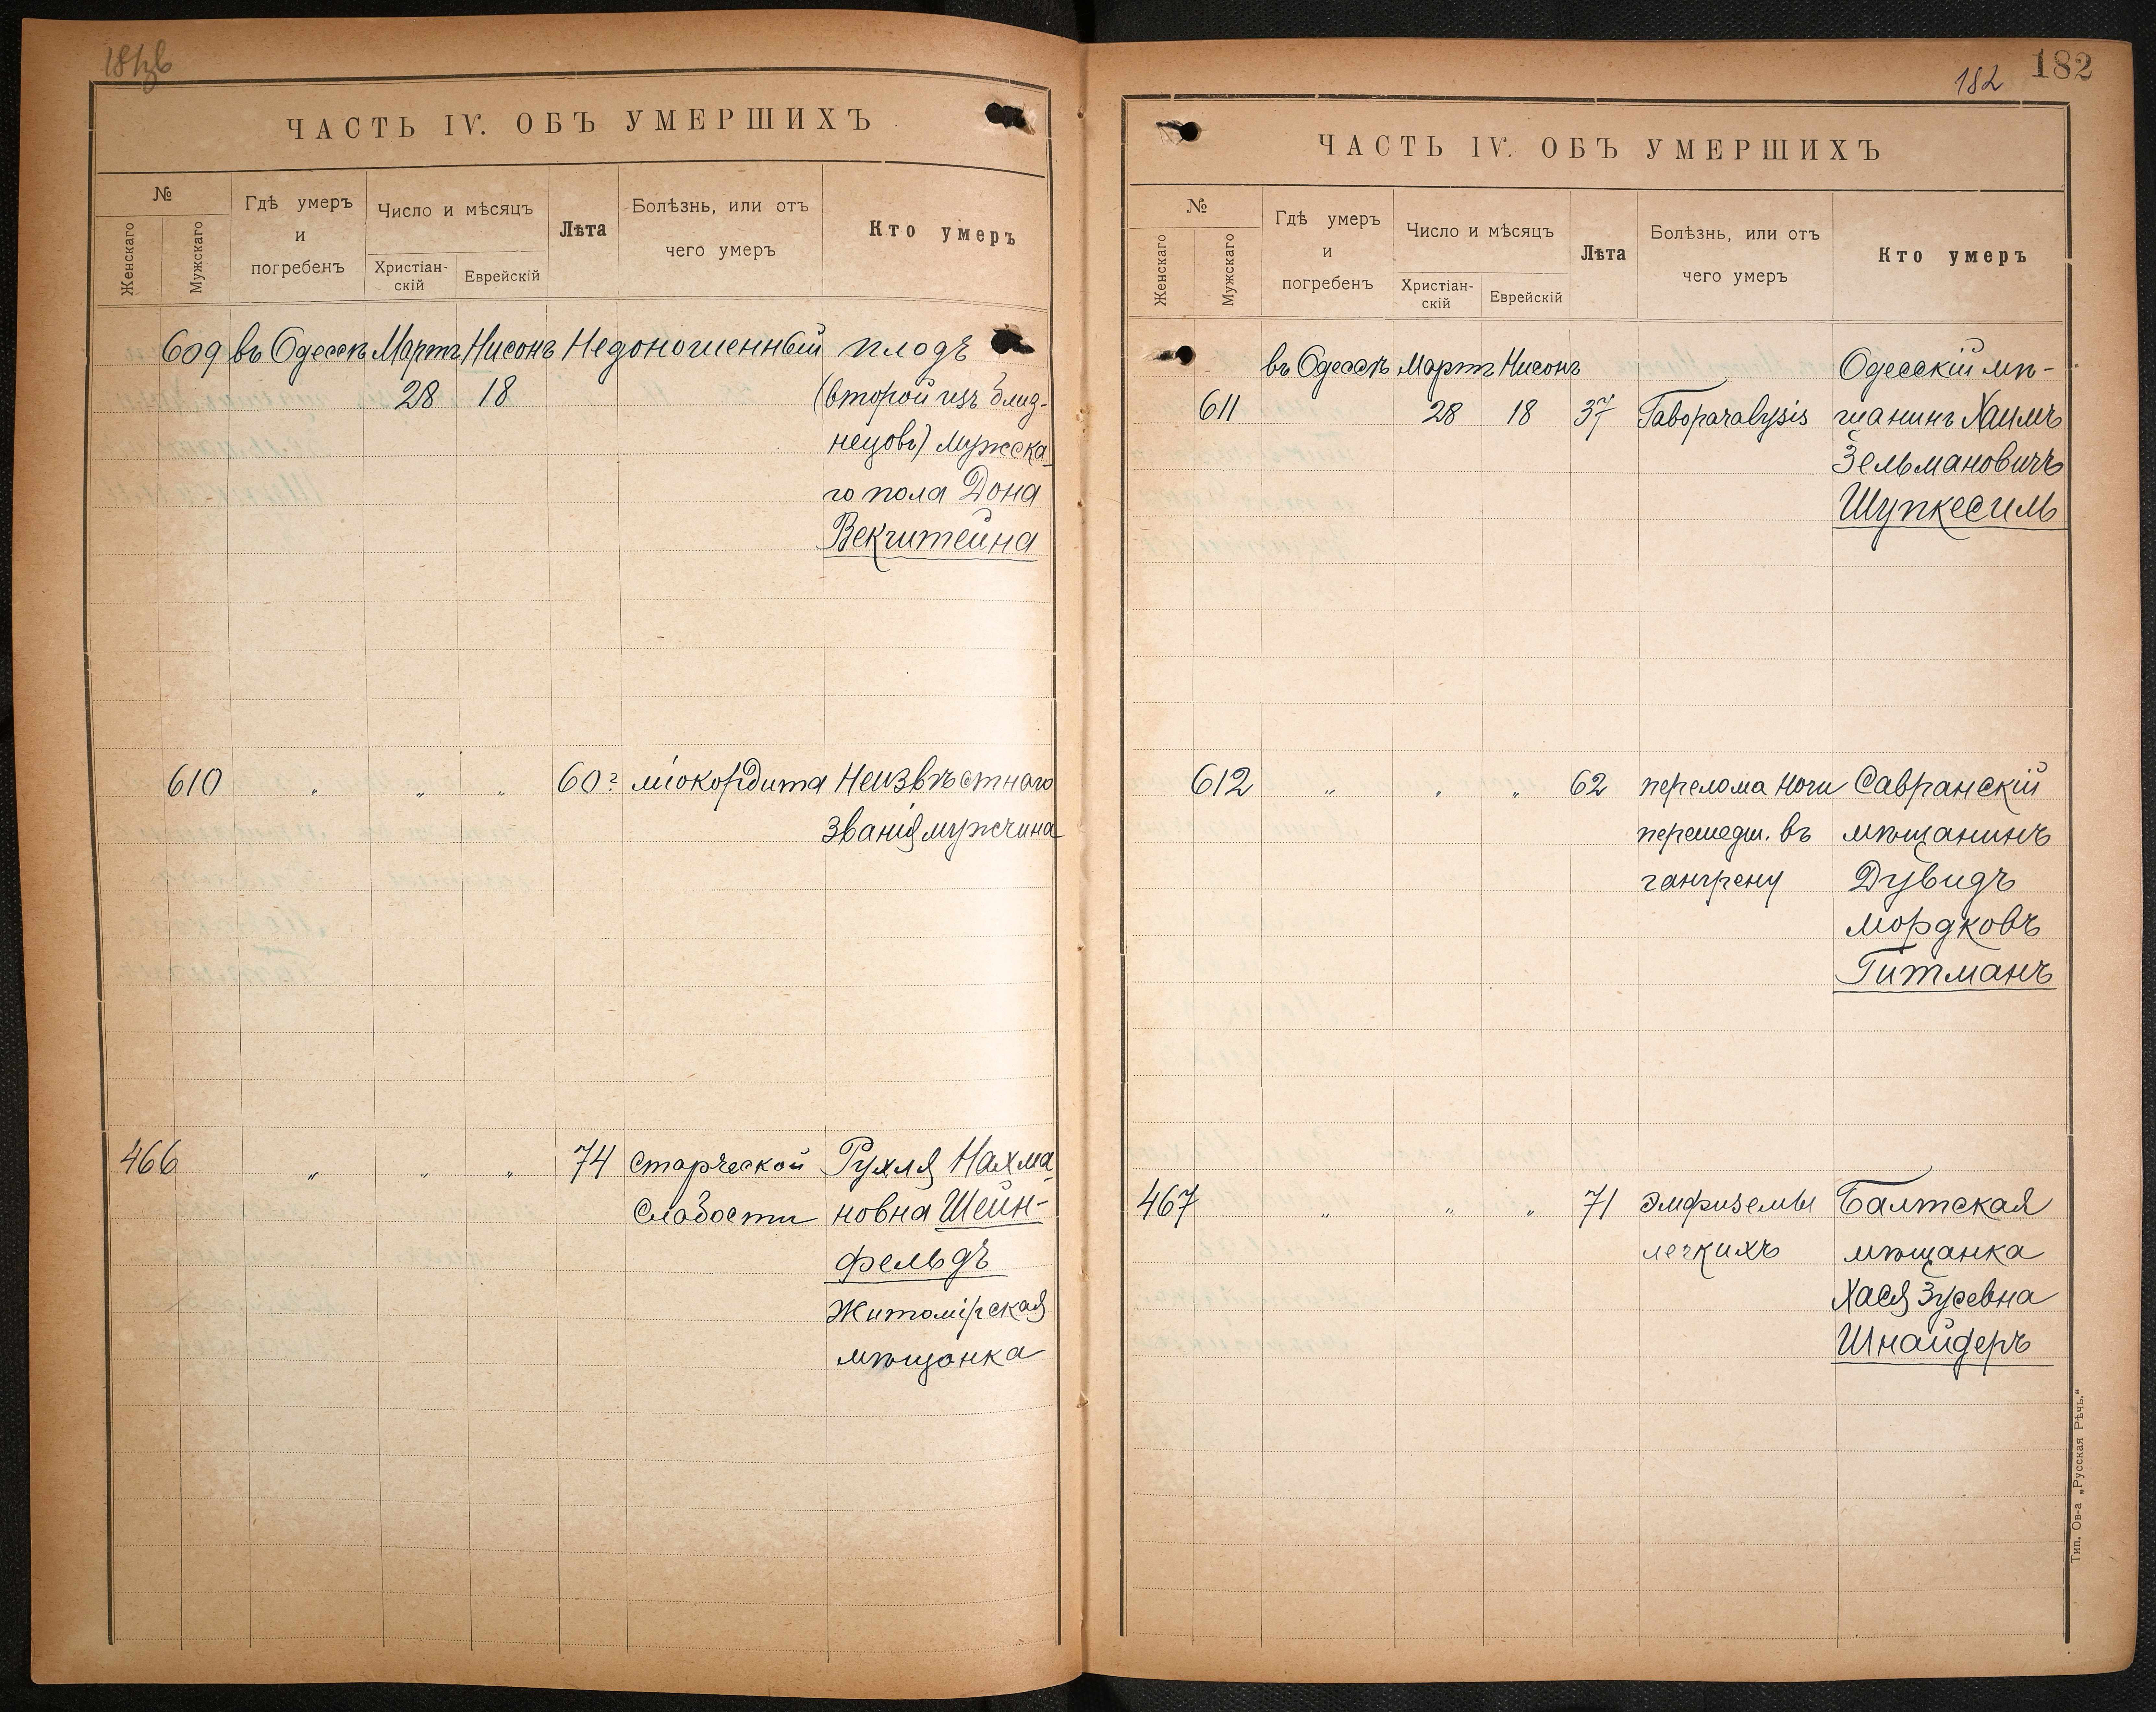 181 об
ЧАСТЬ IV. ОБЪ УМЕРШИХЪ
№
Женскаго
Мужскаго
Гдѣ умеръ
и
погребенъ
Число и мѣсяцъ
Христіан-
скій
Еврейскій
Лѣта
Болѣзнь, или отъ
чего умеръ
Кто умеръ
609 въ Одессѣ Мартъ Нисонъ Недоношенный плодъ
28 18 (второй изъ близ-
нецовъ) мужска-
го пола Дона
Векштейна
610 " " " 60? міокордита Неизвѣстнаго
званія мужчина
466 " " " 74 старческой Рухля Нахма-
слабости новна Шейн-
фельдъ
Житомірская
мѣщанка
182
182
ЧАСТЬ IV. ОБЪ УМЕРШИХЪ
№
Женскаго
Мужскаго
Гдѣ умеръ
и
погребенъ
Число и мѣсяцъ
Христіан-
скій
Еврейскій
Лѣта
Болѣзнь, или отъ
чего умеръ
Кто умеръ
въ Одессѣ Мартъ Нисонъ Одесскій мѣ-
611 28 18 37 Taboparalysis щанинъ Хаимъ
Зельмановичъ
Шупкесиль
612 " " " 62 перелома ноги Савранскій
перешедш. въ мѣщанинъ
гангрену Дувидъ
Мордковъ
Гитманъ
467 " " " 71 эмфиземы Балтская
легкихъ мѣщанка
Хася Зусевна
Шнайдеръ
Тип. Ов-а „Русская Рѣчь."